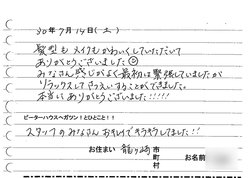 30年7月14日(土)
髪型も メイクもかわいくしていただいて
ありがとうございました☺
みなさん感じがよく最初は緊張していましたが
リラックスしてさつえいすることができました。
本当にありがとうございました!!!!!
ピーターハウスへガツン!とひとこと!!
スタッフのみなさん おきれいでキラキラしてました!!
お住まい 龍ヶ崎 市
町
村
お名前